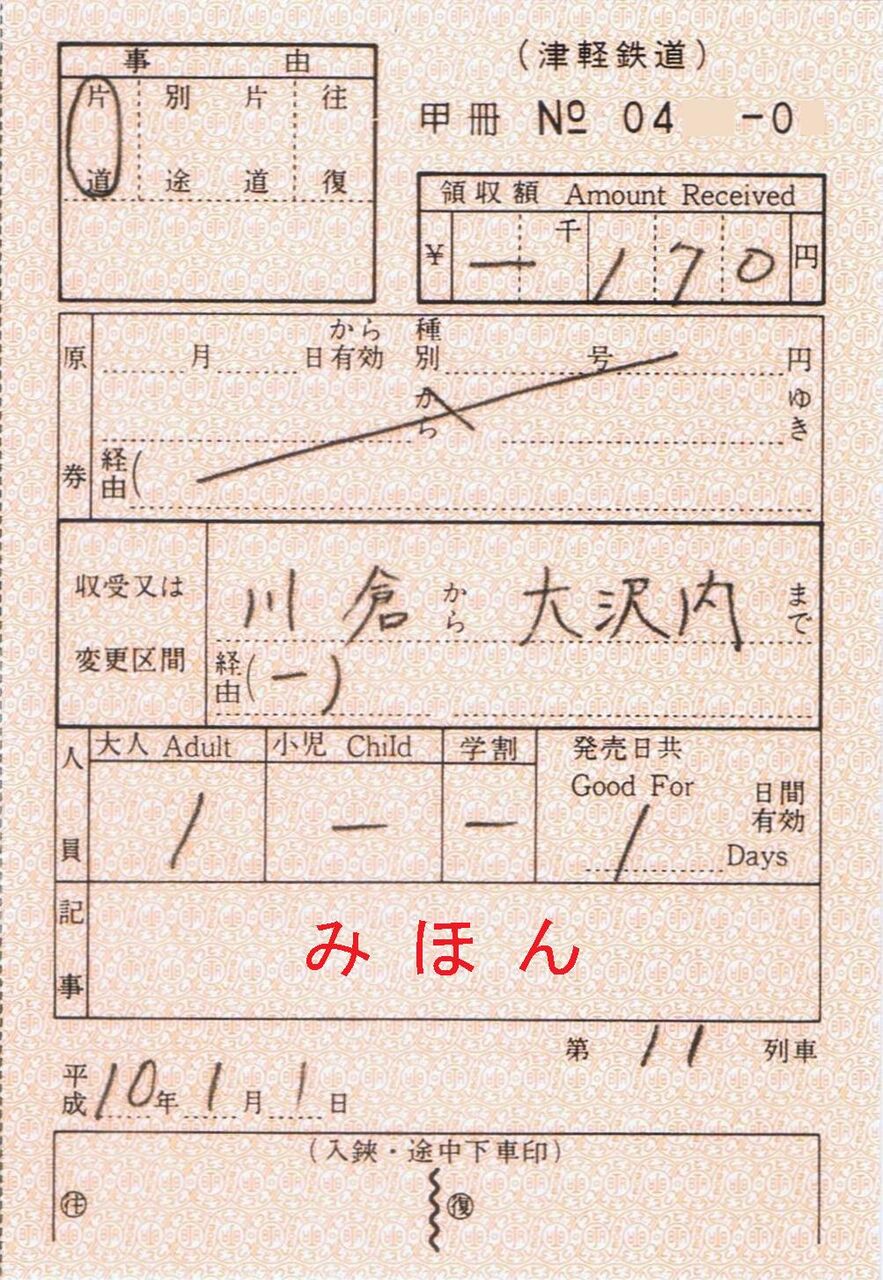 (津軽鉄道)
甲冊 № 04 -0
事由
片道 別途 片道 往復
領収額 Amount Received
¥ 一 千 170 円
原券
月 日から有効 種別 号 円
から ゆき
経由(
収受又は変更区間
川倉 から 大沢内 まで
経由(一)
人員
大人 Adult 小児 Child 学割 発売日共
Good For
1 一 一 1 日間有効
Days
記事
みほん
第 11 列車
平成10年1月1日
(入鋏・途中下車印)
往 復